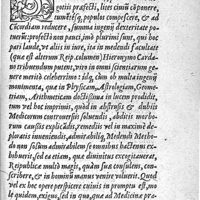 gotij præfecti, lites ciuiũ cõponere,
tumultusq́, populos compescere, & ad
cõcordiam reducere, summa ingenij dexteritate po-
tuerũt: præfectò non pauci, imò plurimi sunt, qui hac
pari laude, vt alij in iure, ita in medendi facultate
(quæ est alterum Reip. columen) Hieronymo Carda-
no tribuendum putent, viro in omni scientiarum ge-
nere meritò celeberrimo: id q́, cùm ob multa ingenij
monimenta, quæ in Physicam, Astrologiam, Geome-
triam, Arithmeticam doctissima in lucem prodidit,
tum vel hoc imprimis, quòd in abstrusis & dubijs
Medicorum controuersijs soluendis, abditis morbo-
rum causis explicandis, remedijs vel in maximè de-
ploratis inueniendis, admirabilis, Medendi Metho-
do non solùm admirabilem se omnibus hactenus ex-
hibuerit, sed ea etiam, quæ diuinitus excogitauerat,
Reipublicæ modò magis, quàm sua consulens, con-
scribere, & in hominũ manus venire voluerit. Quod
vel ex hoc opere perspicere cuiuis in promptu est, mo-
le quidem, exiguo, sed in quo, quæ ad Medicinæ pra-